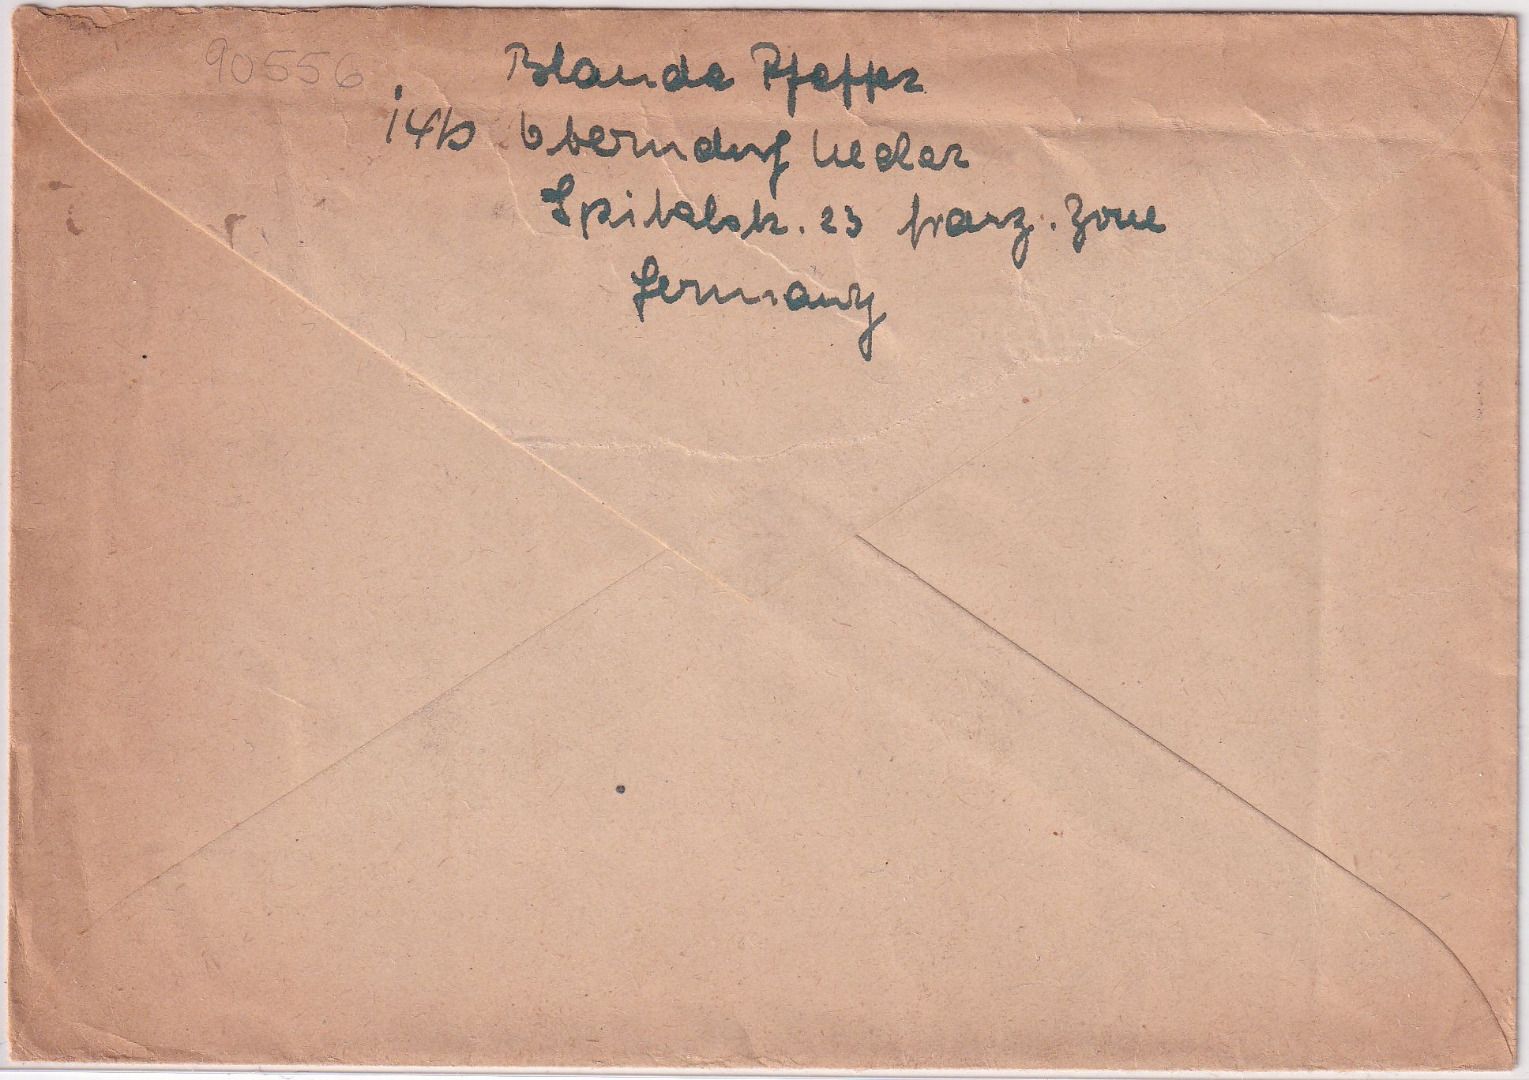 90556
Blanda Pfeffer
14b Oberndorf Neckar
Spitalstr. 23 franz. Zone
Germany